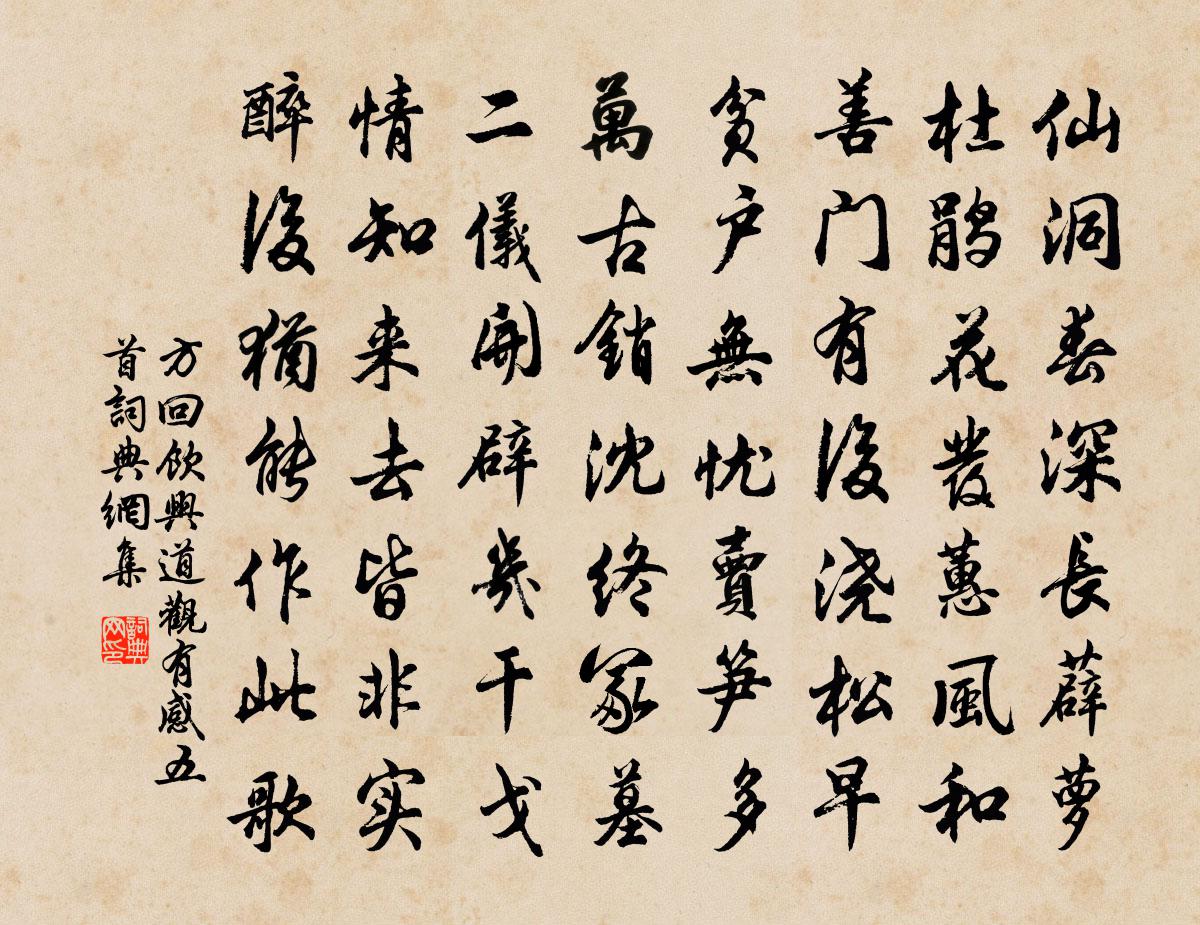 仙洞春深長薜萝
杜鹃花發蕙風和
善门有後浇松早
貧户無忧賣笋多
萬古銷沈终冢墓
二儀開辟幾干戈
情知来去皆非实
醉後猶能作此歌
方回饮興道觀有感五
首詞典網集
詞典网印